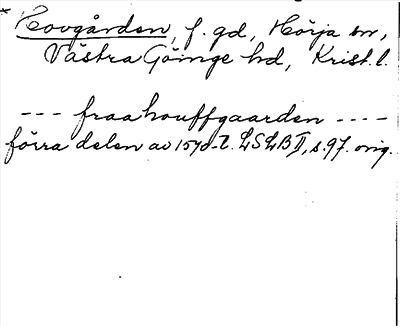 * Hovgården, f. gd, Hörja sn,
Västra Göinge hd, Krist. l.
--- fraa houffgaarden ----
förra delen av 1570-t. LSLB II, s. 97. orig.